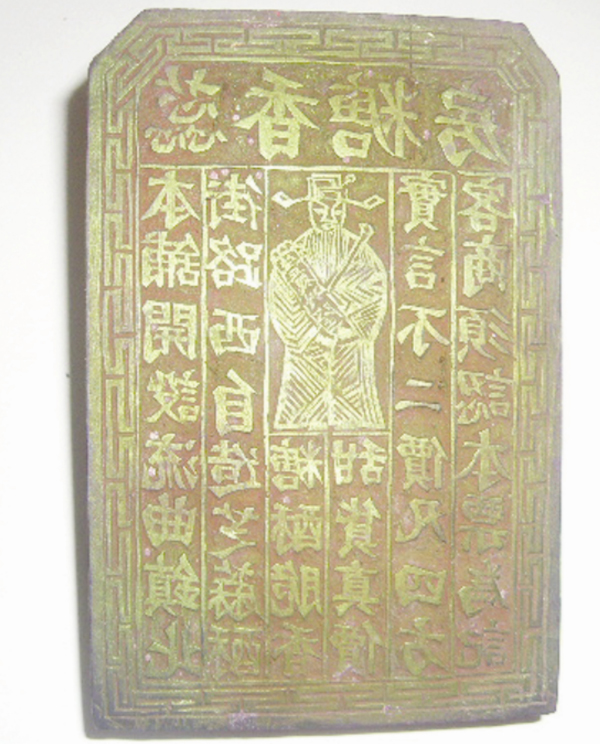 蕊香糖房
本舖開設流曲鎮北
街路西自造芝蔴酥
糖酥脆香
甜貨真價
實言不二價凡四方
客商須認本票為記